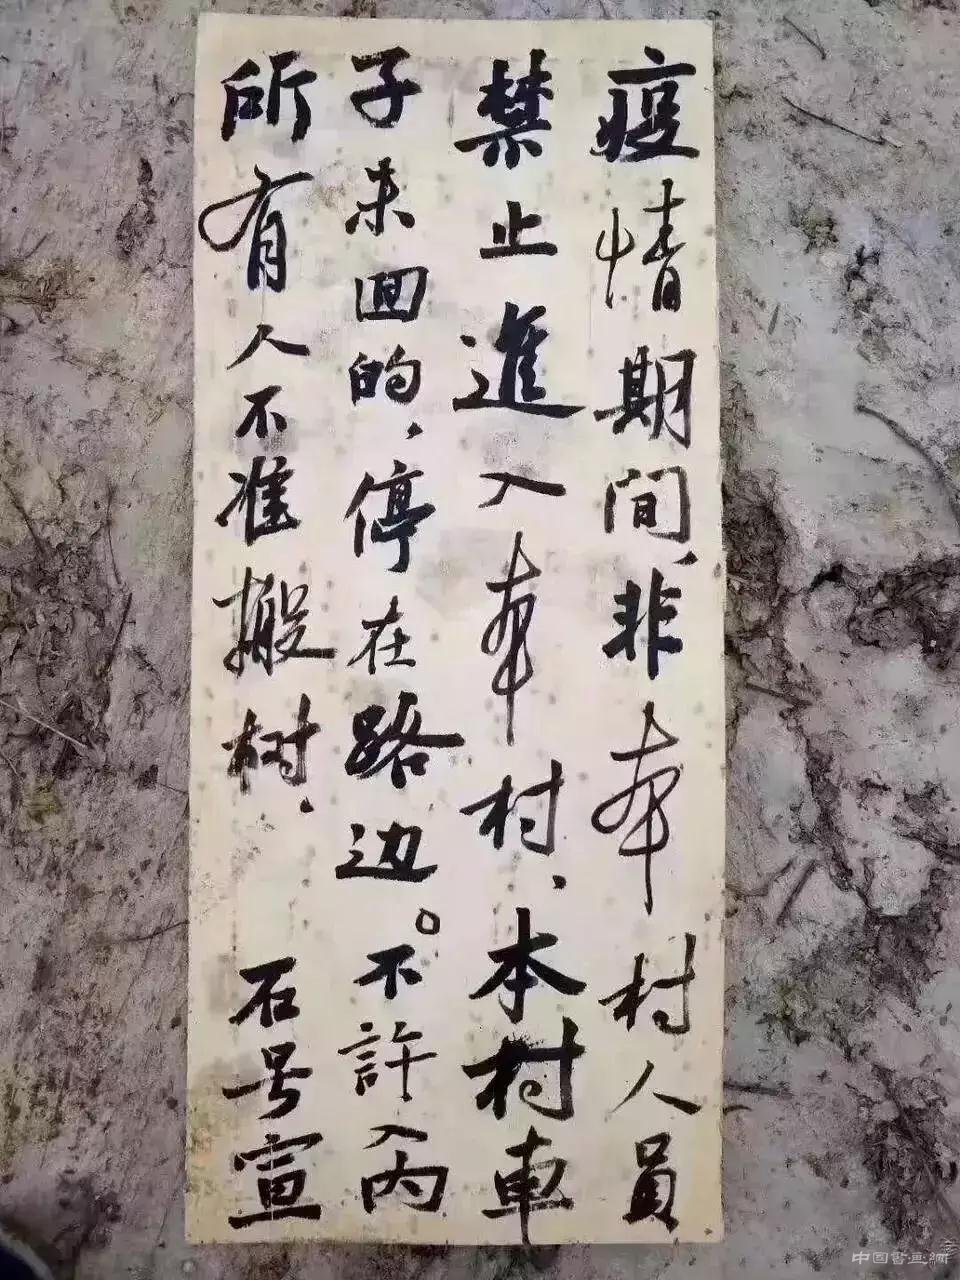 疫情期间、非本村人員
禁止進入本村、本村車
子未回的，停在路边。不許入内
所有人不准搬树．石号宣
中国書画網